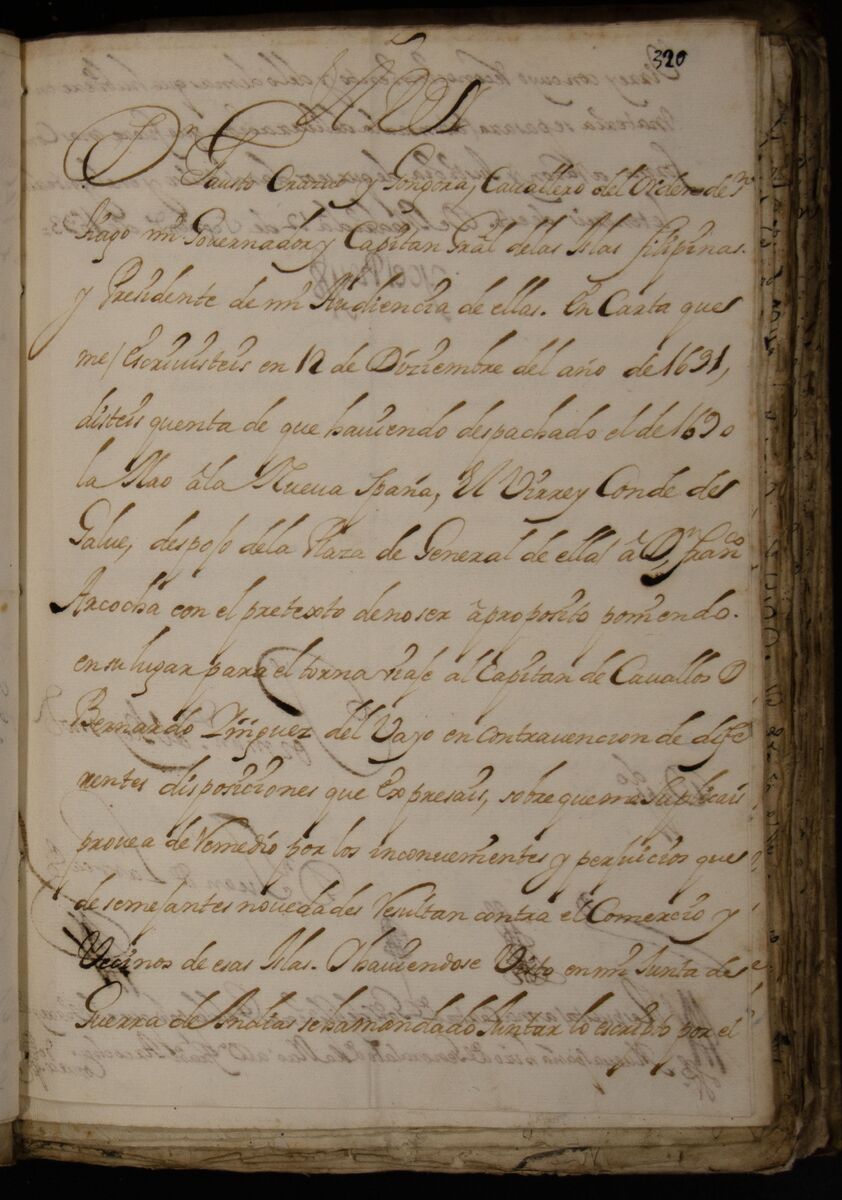 320
El Rey
Dn Fausto Cruzat y Gongora, Cavallero del Orden de Sn
tiago mi Governador y Capitan Gral delas Islas filipinas
y Presidente de mi Audiencia de ellas. En Carta que
me escrivisteis en 12 de Diziembre del año de 1691,
disteis quenta de que haviendo despachado el de 1690
la Nao à la Nueva españa, El Virrey Conde de
Galve, desposo dela Plaza de General de ella à Dn franco
Arcocha con el pretexto de no ser à proposito poniendo
en su lugar para el torna viaje al Capitan de Cavallos D
Bernardo Yñiguez del Vayo en contravencion de dife
rentes disposiciones que expresais, sobre que me suplicais
provea de Remedio por los inconvenientes y perjuicios que
de semejantes novedades Resultan contra el Comercio y
Vecinos de esas Islas. Y haviendose Visto en mi Junta de
Guerra de Indias se ha mandado Juntar lo escripto por el